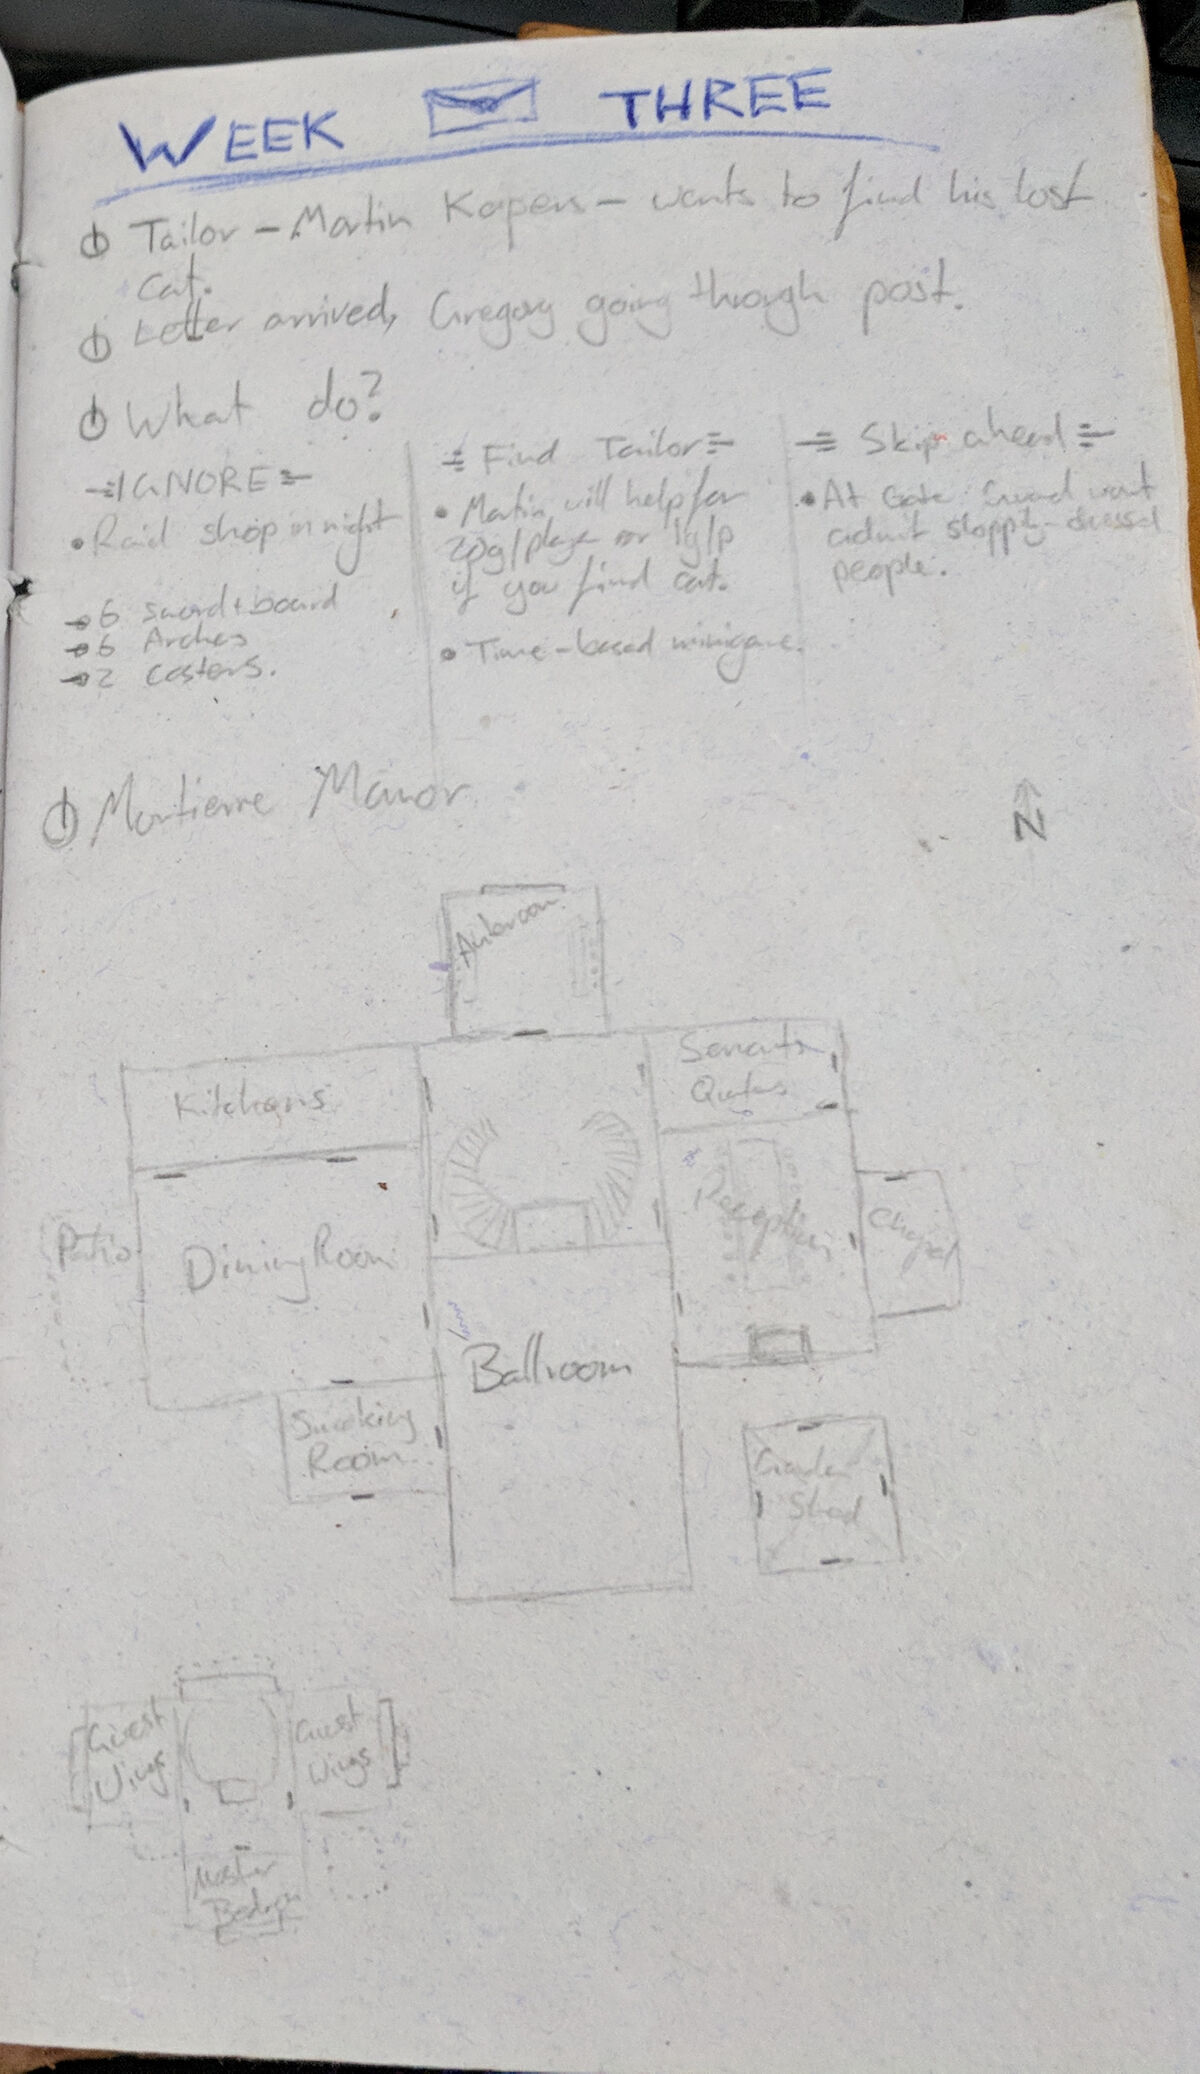 WEEK THREE
Tailor - Martin Kapers - wants to find his lost
cat.
Letter arrived, Gregory going through post.
What do?
IGNORE
• Raid shop in night
→ 6 sword + board
→ 6 Archers
→ 2 casters.
Find Tailor
• Martin will help for
20g/player or 1g/p
if you find cat.
• Time-based minigame.
Skip ahead
• At Gate. Guard wont
admit sloppily-dressed
people.
Manor
N
Anteroom
Kitchens
Servants
Quaters
Patio
Dining Room
Reception
Chapel
Ballroom
Smoking
Room
Garden
Shed
Guest
Wings
Guest
Wings
Master
Bedroom